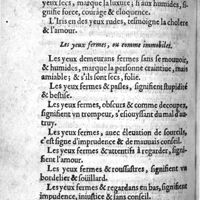 yeux secs, marque la luxure; si aux humides, si-
gnifie force, courage & eloquence.
L'Iris en des yeux rudes, tesmoigne la cholere
& l'amour.
Les yeux fermes, ou comme immobiles.
Les yeux demeurans fermes sans se mouuoir,
& humides, marque la personne craintiue, mais
amiable; & s'ils sont secs, folie.
Les yeux fermes & pasles, signifient stupidité
& bestise.
Les yeux fermes, obscurs & comme decoupes,
signifient vn trompeur, s'esiouyssant du mal d'au-
truy.
Les yeux fermes, auec éleuation de sourcils,
c'est signe d'imprudence & de mauuais conseil.
Les yeux fermes & attentifs à regarder, signi-
fient l'amour.
Les yeux fermes & roussastres, signifient vn
bordelier & soüillard.
Les yeux fermes & regardans en bas, signifient
impudence, iniustice & sans conseil.